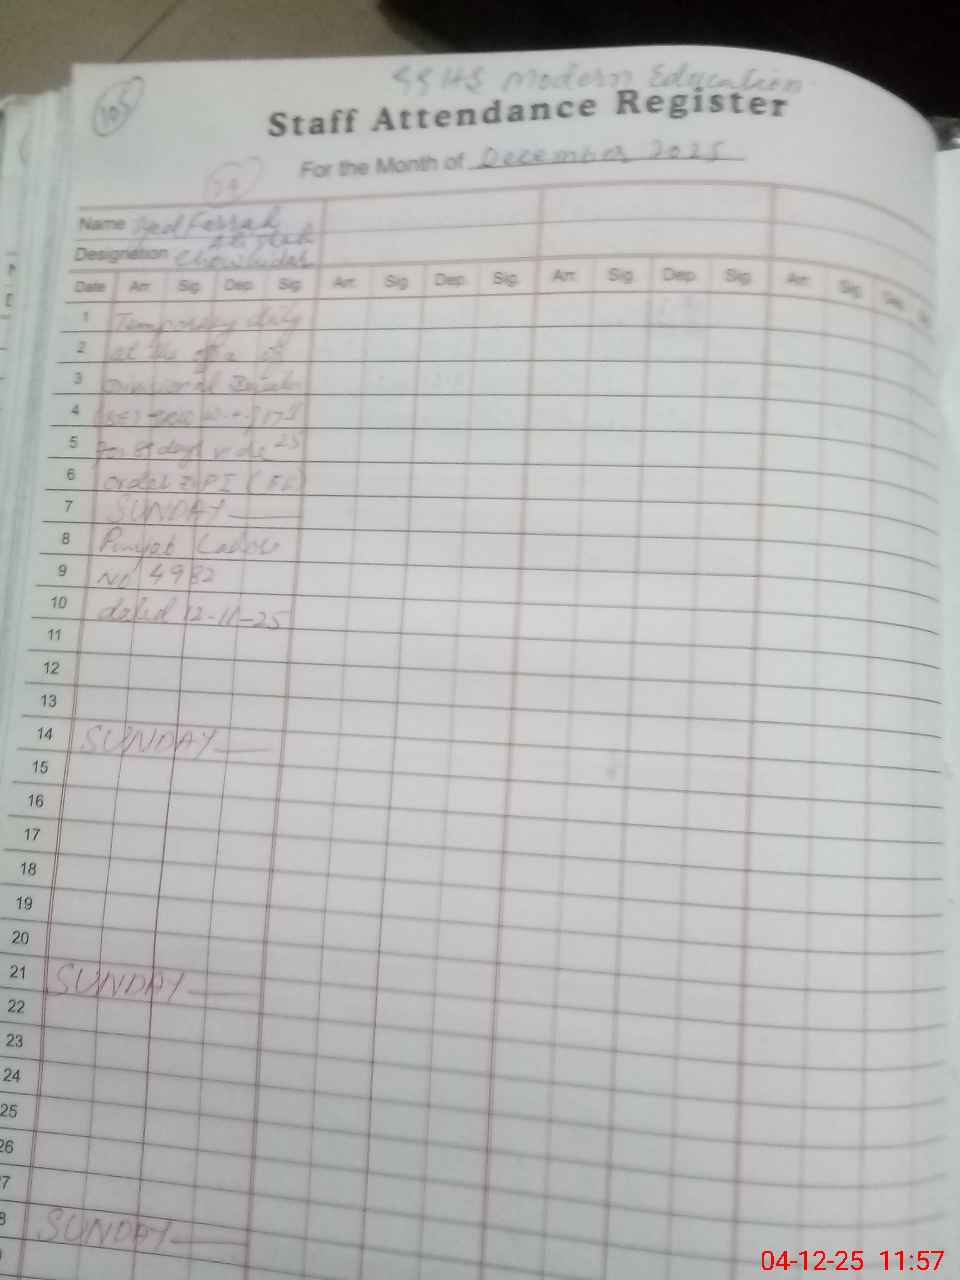 105
SSHS Modern Education
Staff Attendance Register
For the Month of December 2025
Name
Designation Chowkidar
Date Arr. Sig. Dep. Sig. Arr. Sig. Dep. Sig. Arr. Sig. Dep. Sig. Arr. Sig. Dep.
1 Temporary duty
2 at the of
3
4
5 days vide
6 order PI
7 SUNDAY
8 Punjab Lahore
9 No 4982
10 dated 12-11-25
11
12
13
14 SUNDAY
15
16
17
18
19
20
21 SUNDAY
22
23
24
25
26
7
8 SUNDAY
04-12-25 11:57